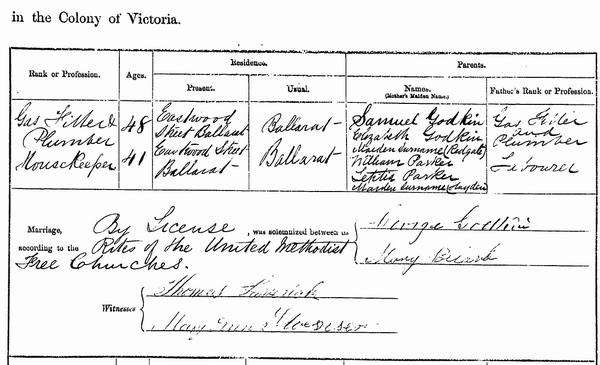 in the Colony of Victoria.
Rank or Profession. Ages. Residence. Parents.
Present. Usual. Names. (Mother's Maiden Name.) Father's Rank or Profession.
Gas Fitter & 48 Eastwood Ballarat Samuel Godkin Gas Fitter
Plumber Street Ballarat Elizabeth Godkin and
Maiden Surname (Redgate) Plumber
Housekeeper 41 Eastwood Street Ballarat William Parker Labourer
Ballarat Letitia Parker
Maiden Surname (Hayden)
Marriage, By License , was solemnized between us George Godkin
according to the Rites of the United Methodist Mary
Free Churches.
Witnesses Thomas
Mary Ann